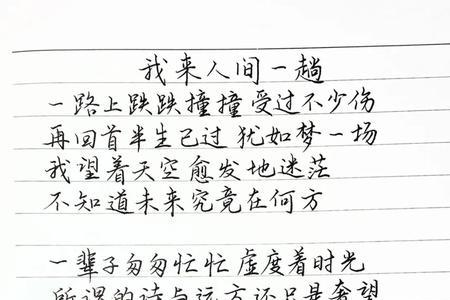 我来人间一趟
一路上跌跌撞撞 受过不少伤
再回首半生已过 犹如梦一场
我望着天空愈发地迷茫
不知道未来究竟在何方
一辈子匆匆忙忙 虚度着时光
所谓的诗与远方还只是奢望